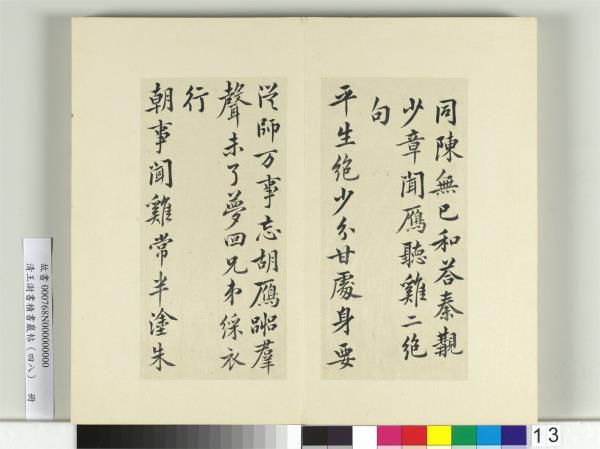 同陳無己和荅秦覯
少章聞鴈聽雞二絶
句
平生絶少分甘處身要
從師万事忘胡鴈㘅羣
聲未了夢回兄弟綵衣
行
朝事聞雞常半塗朱
故書 000768N000000000
清王澍書積書巖帖（四八） 冊
13